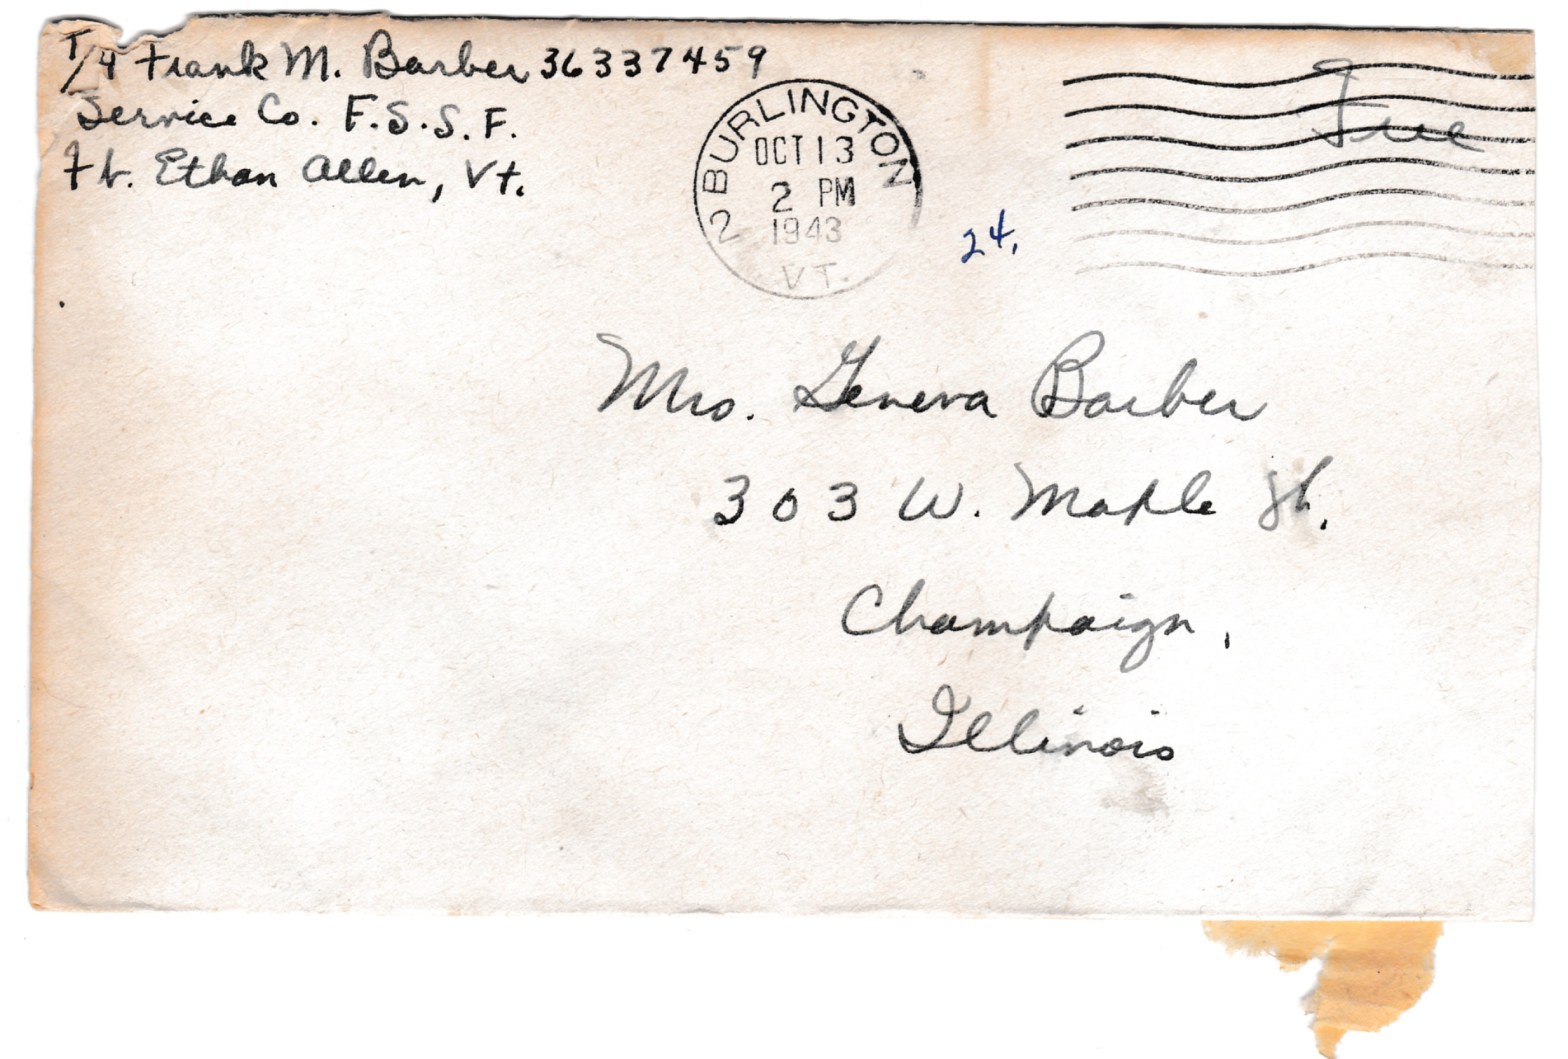 T/4 Frank M. Barber 36337459
Service Co. F.S.S.F.
Ft. Ethan Allen, Vt.
BURLINGTON
2
OCT 13
2 PM
1943
VT.
Free
24.
Mrs. Geneva Barber
303 W. Maple St.
Champaign,
Illinois